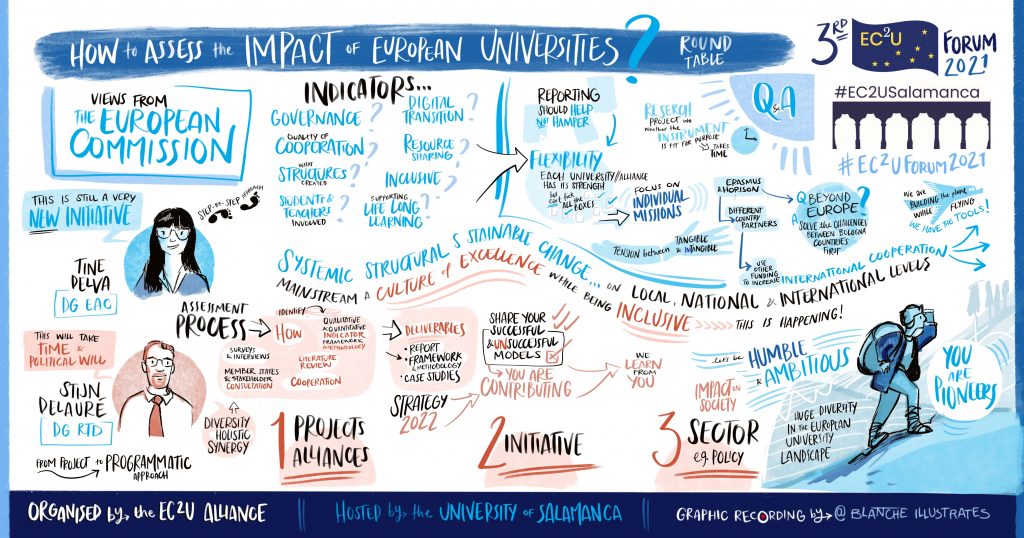 HOW to ASSESS the IMPACT of EUROPEAN UNIVERSITIES?
ROUND
TABLE
3RD
EC2U
FORUM
2021
#EC2USalamanca
#EC2UFORUM2021
VIEWS FROM
THE EUROPEAN
COMMISSION
THIS IS STILL A VERY
NEW INITIATIVE
STEP-BY-STEP APPROACH
TINE
DELVA
DG EAC
THIS WILL TAKE
TIME &
POLITICAL WILL
STIJN
DELAURE
DG RTD
FROM PROJECT to PROGRAMMATIC
APPROACH
DIVERSITY
HOLISTIC
SYNERGY
INDICATORS...
GOVERNANCE?
QUALITY OF
COOPERATION?
WHAT
STRUCTURES?
CREATED
STUDENTS &
TEACHERS?
INVOLVED
DIGITAL
TRANSITION?
RESOURCE
SHARING?
INCLUSIVE?
SUPPORTING
LIFE LONG
LEARNING?
REPORTING
SHOULD HELP
NOT HAMPER
FLEXIBILITY
EACH UNIVERSITY/ALLIANCE
HAS ITS STRENGTH
ALL THE
BOXES
FOCUS ON
INDIVIDUAL
MISSIONS
TENSION between TANGIBLE
& INTANGIBLE
RESERCH
PROJECT into
WHETHER the
INSTRUMENT
IS FIT FOR PURPOSE
TAKES
TIME
Q&A
ERASMUS
& HORISON
DIFFERENT
COUNTRY
PARTNERS
USE
OTHER
FUNDING
TO INCREASE
INTERNATIONAL COOPERATION
Q BEYOND
EUROPE?
SOLVE the CHALLENGES
BETWEEN BOLOGNA
COUNTRIES
FIRST
WE ARE
BUILDING the PLANE
WHILE FLYING
WE HAVE THE TOOLS!
SYSTEMIC STRUCTURAL SUSTAINABLE CHANGE... ON LOCAL, NATIONAL & INTERNATIONAL LEVELS
MAINSTREAM A CULTURE of EXCELLENCE WHILE BEING INCLUSIVE THIS IS HAPPENING!
ASSESSMENT
PROCESS
IDENTIFY
HOW
QUALITATIVE
& QUANTITATIVE
INDICATOR
FRAMEWORK
METHODOLOGY
SURVEYS
& INTERVIEWS
MEMBER STATES
& STAKEHOLDER
CONSULTATION
LITERATURE
REVIEW
COOPERATION
DELIVERABLES
• REPORT
• FRAMEWORK
& METHODOLOGY
• CASE STUDIES
SHARE YOUR
SUCCESSFUL
& UNSUCCESSFUL
MODELS
YOU ARE
CONTRIBUTING
STRATEGY
2022
WE
LEARN
FROM
YOU
1 PROJECTS
ALLIANCES
2 INITIATIVE
3 SECTOR
e.g. POLICY
IMPACT on
SOCIETY
let's be HUMBLE
& AMBITIOUS
HUGE DIVERSITY
IN the EUROPEAN
UNIVERSITY
LANDSCAPE
YOU
ARE
PIONEERS
ORGANISED by the EC2U ALLIANCE
HOSTED by the UNIVERSITY of SALAMANCA
GRAPHIC RECORDING by @ BLANCHE ILLUSTRATES